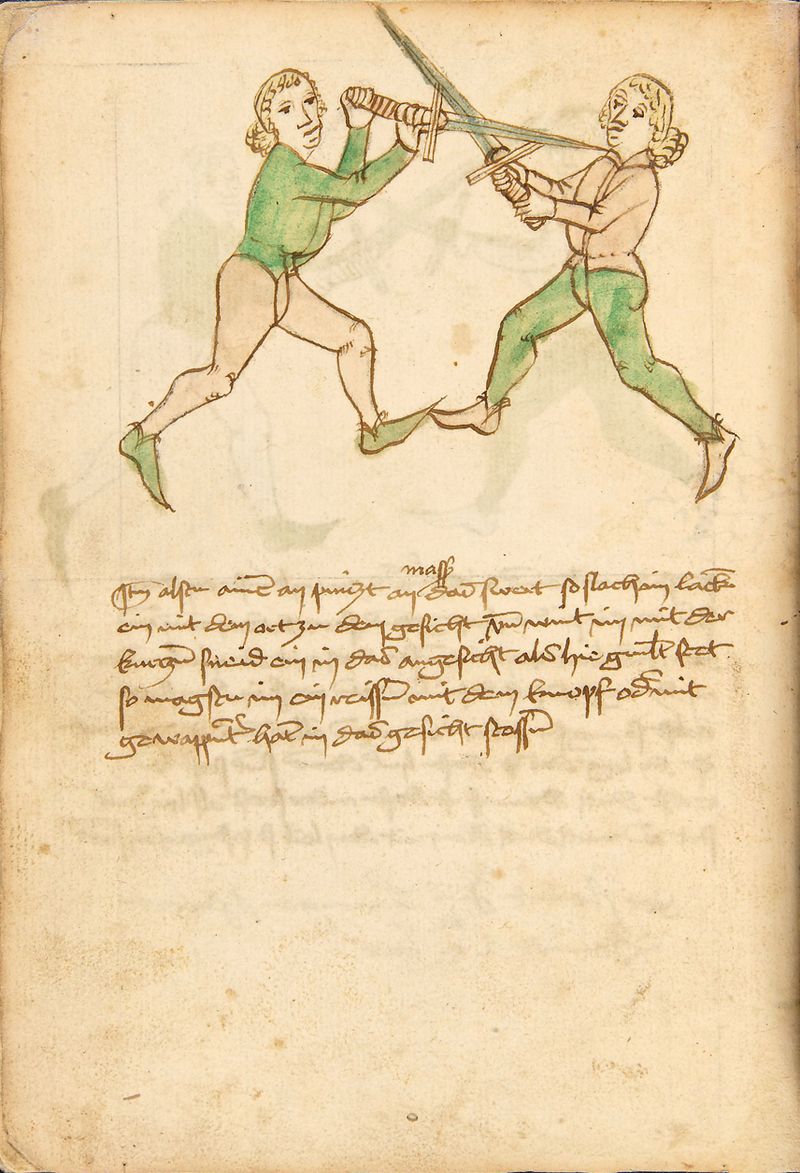 masz
Itm alstu aine an pintzt an das swert so slach im lanck
ein mit dem ort zu dem gesicht vnd wint im mit der
kurczn sneid ein in das angesicht als hie gmlt stet
so magstu im ein reissn mit dem knopf od mit
gewappnt hant in das gesicht stossn